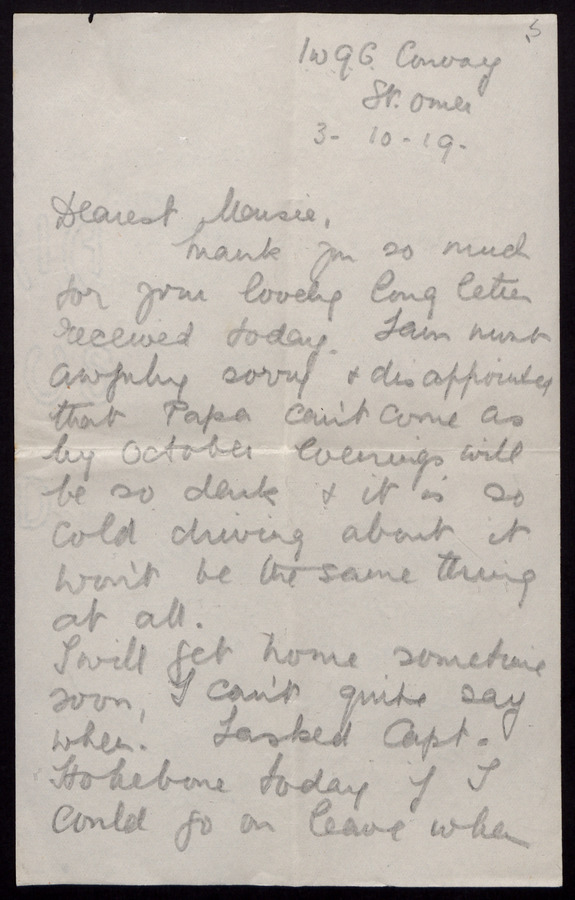 5
Convoy
St. Omer
3-10-19-
Dearest Mousie,
Thank you so much
for your lovely long letter
received today. I am most
awfully sorry & disappointed
that Papa can't come as
by October evenings will
be so dark & it is so
cold driving about it
won't be the same thing
at all.
I will get home sometime
soon, I can't quite say
when. I asked Capt.
today if I
could go on leave when